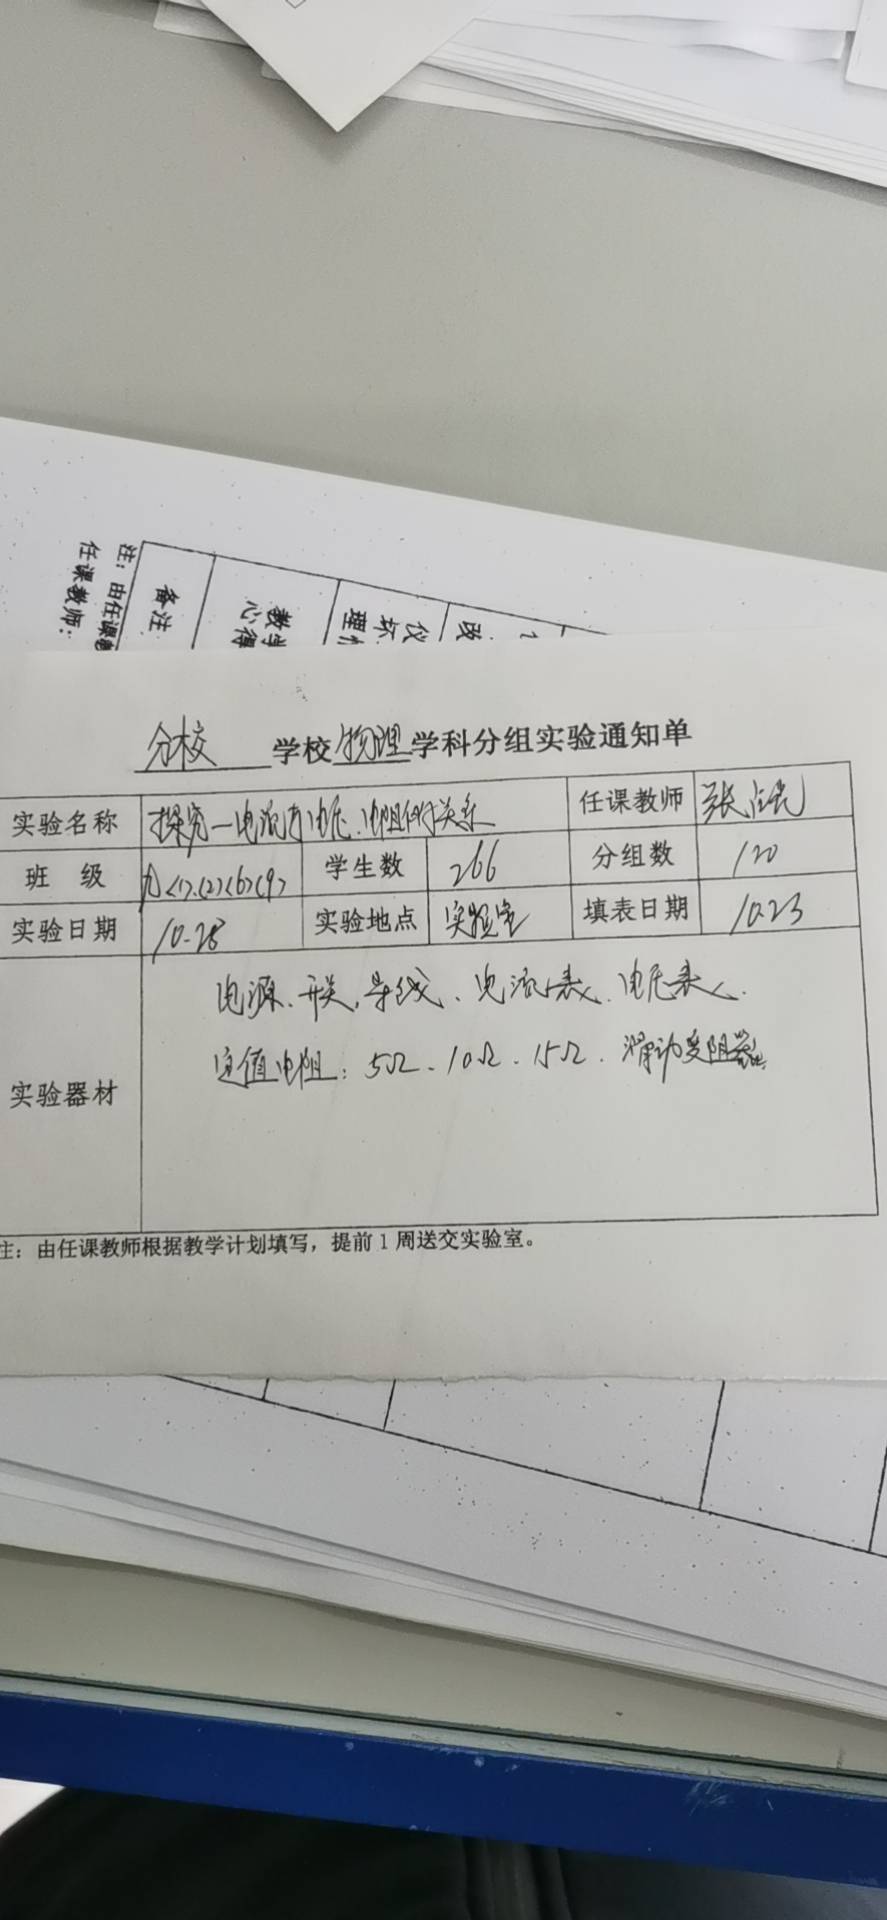 注：由任课教
任课教师：
备注
教学
心得
仪
坏
理
分校 学校 物理 学科分组实验通知单
实验名称 探究—电流与电压、电阻的关系 任课教师 张
班 级 九<1><2><6><9> 学生数 266 分组数 120
实验日期 10.28 实验地点 实验室 填表日期 10.23
实验器材 电源、开关、导线、电流表、电压表、
定值电阻：5Ω、10Ω、15Ω、滑动变阻器
注：由任课教师根据教学计划填写，提前1周送交实验室。